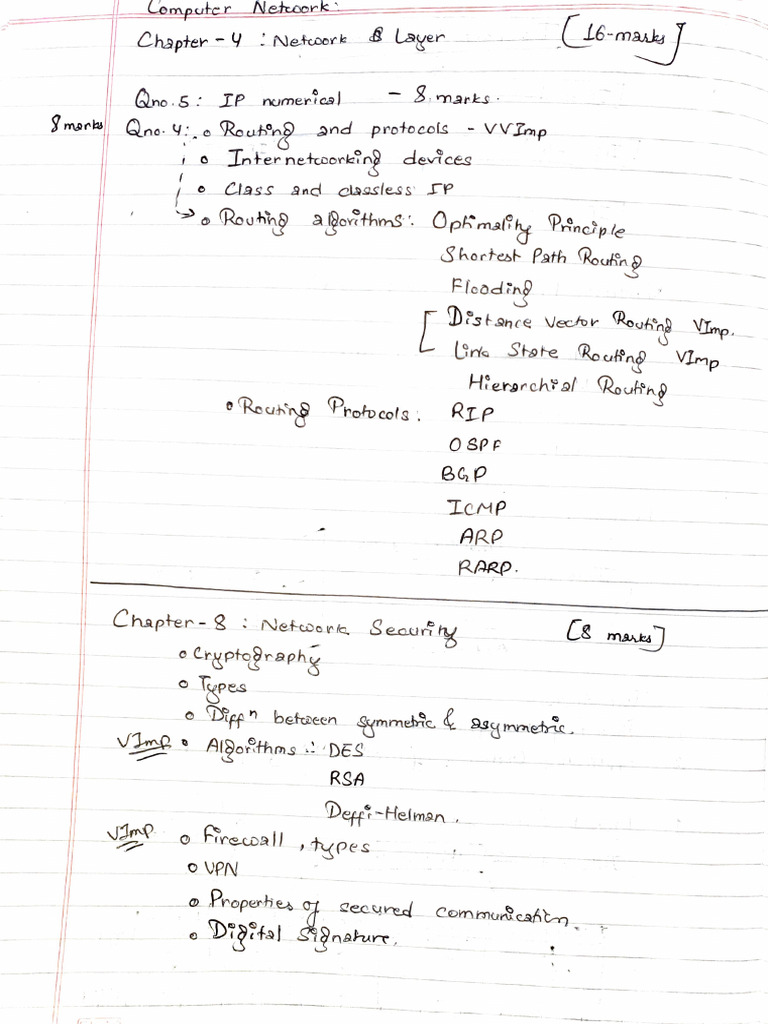 Computer Network:
Chapter-4 : Network Layer [16-marks]
Qno.5: IP numerical - 8 marks.
8 marks Qno.4: o Routing and protocols - VVImp
o Internetworking devices
o Class and classless IP
→ o Routing algorithms: Optimality Principle
Shortest Path Routing
Flooding
Distance vector Routing VImp.
Link State Routing VImp
Hierarchial Routing
o Routing Protocols: RIP
OSPF
BGP
ICMP
ARP
RARP.
Chapter-8 : Network Security [8 marks]
o Cryptography
o Types
o Diffn between symmetric & asymmetric.
VImp o Algorithms :- DES
RSA
Deffi-Helman.
VImp o Firewall, types
o VPN
o Properties of secured communication.
o Digital Signature.